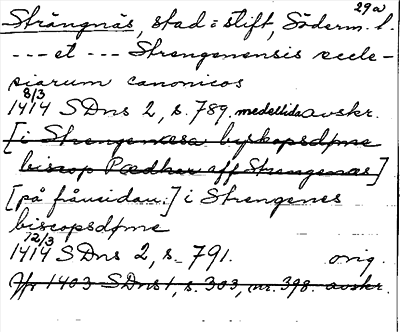 29a
Strängnäs, stad o stift, Söderm. l.
--- et --- Strengenensis eccle-
siarum canonicos
8/3
1414 SDns 2, s. 789. medeltida avskr.
[i Strengenæsa byskopsdøme
biscop Pædhar aff Strengenæs]
[på frånsidan:] i Strengenes
biscopsdøme
12/3
1414 SDns 2, s. 791. orig.
Jfr 1403 SDns 1, s. 303, nr. 398. avskr.